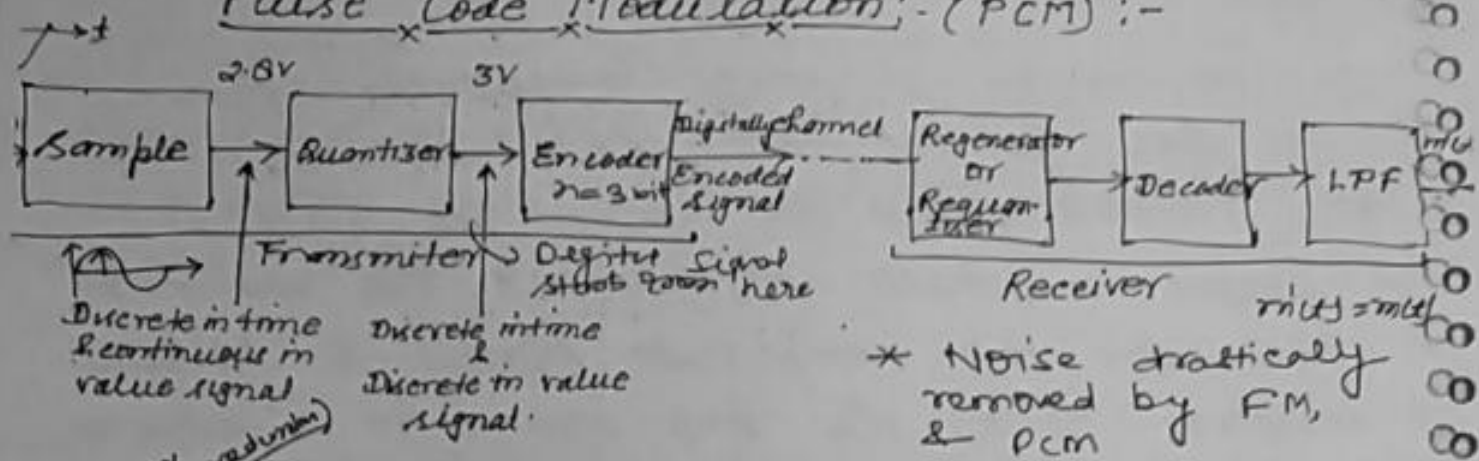 Pulse Code Modulation :- (PCM) :-
→t
2.8V
3V
Sample
Quantizer
Encoder
n=3 bit
Digitally
Encoded
signal
channel
Regenerator
or
Requan
tizer
Decoder
LPF
m'(t)
Transmiter
Degital signal
start from here
Receiver
m'(t) = m(t)
Discrete in time
& continuous in
value signal
Discrete in time
&
Discrete in value
signal.
* Noise drastically
removed by FM,
& PCM